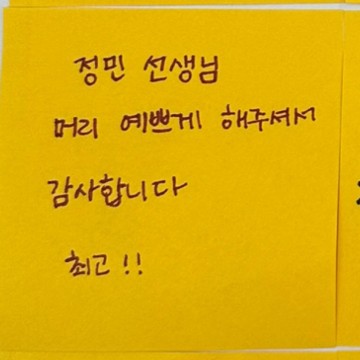 정민 선생님
머리 예쁘게 해주셔서
감사합니다
최고 !!